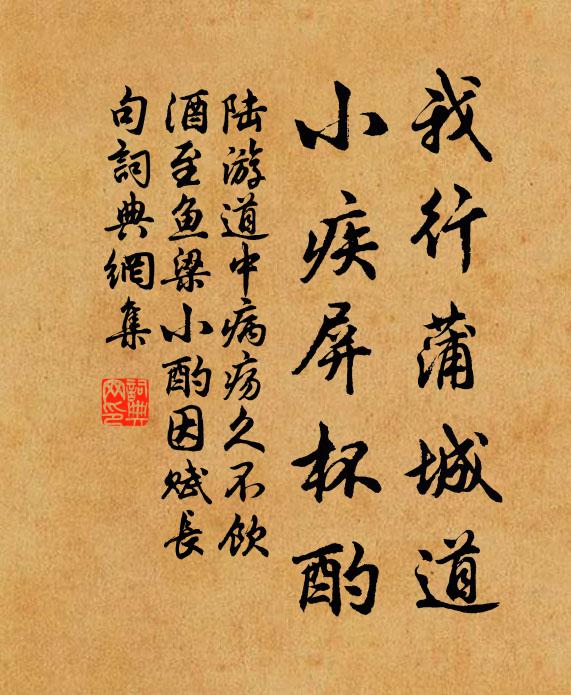 我行蒲城道
小疾屏杯酌
陆游道中病疡久不饮
酒至鱼梁小酌因赋长
句詞典網集
詞典
网印